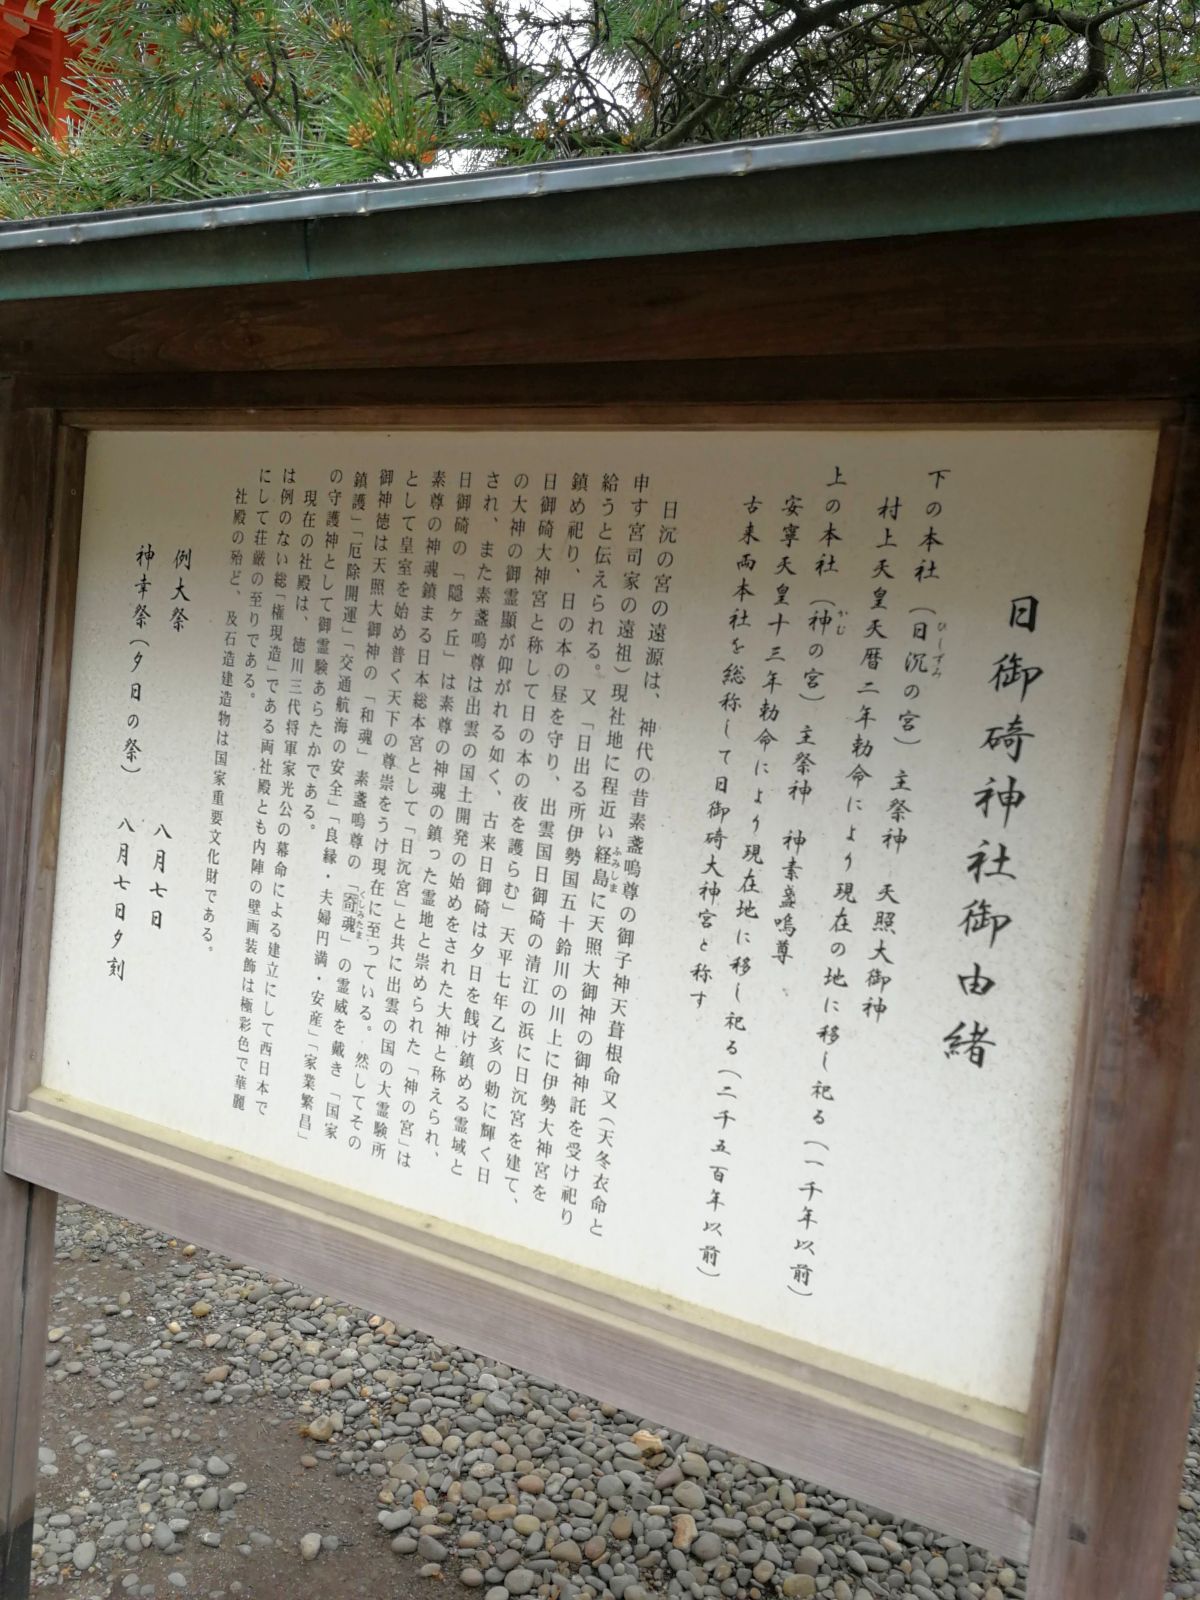 日御碕神社御由緒
下の本社（日沉の宮）　主祭神　天照大御神
ひしずみ
村上天皇天暦二年勅命により現在の地に移し祀る（一千年以前）
上の本社（神の宮）　主祭神　神素盞嗚尊
かむ
安寧天皇十三年勅命により現在地に移し祀る（二千五百年以前）
古来両本社を総称して日御碕大神宮と称す
日沉の宮の遠源は、神代の昔素盞嗚尊の御子神天葺根命又（天冬衣命と
申す宮司家の遠祖）現社地に程近い経島に天照大御神の御神託を受け祀り
ふみしま
給うと伝えられる。又「日出る所伊勢国五十鈴川の川上に伊勢大神宮を
鎮め祀り、日の本の昼を守り、出雲国日御碕の清江の浜に日沉宮を建て、
日御碕大神宮と称して日の本の夜を護らむ」天平七年乙亥の勅に輝く日
の大神の御霊顕が仰がれる如く、古来日御碕は夕日を餞け鎮める霊域と
され、また素盞嗚尊は出雲の国土開発の始めをされた大神と称えられ、
日御碕の「隠ヶ丘」は素尊の神魂の鎮った霊地と崇められた「神の宮」は
素尊の神魂鎮まる日本総本宮として「日沉宮」と共に出雲の国の大霊験所
として皇室を始め普く天下の尊崇をうけ現在に至っている。然してその
御神徳は天照大御神の「和魂」素盞嗚尊の「奇魂」の霊威を戴き「国家
くしみたま
鎮護」「厄除開運」「交通航海の安全」「良縁・夫婦円満・安産」「家業繁昌」
の守護神として御霊験あらたかである。
現在の社殿は、徳川三代将軍家光公の幕命による建立にして西日本で
は例のない総「権現造」である両社殿とも内陣の壁画装飾は極彩色で華麗
にして荘厳の至りである。
社殿の殆ど、及石造建造物は国家重要文化財である。
例大祭　八月七日
神幸祭（夕日の祭）　八月七日夕刻